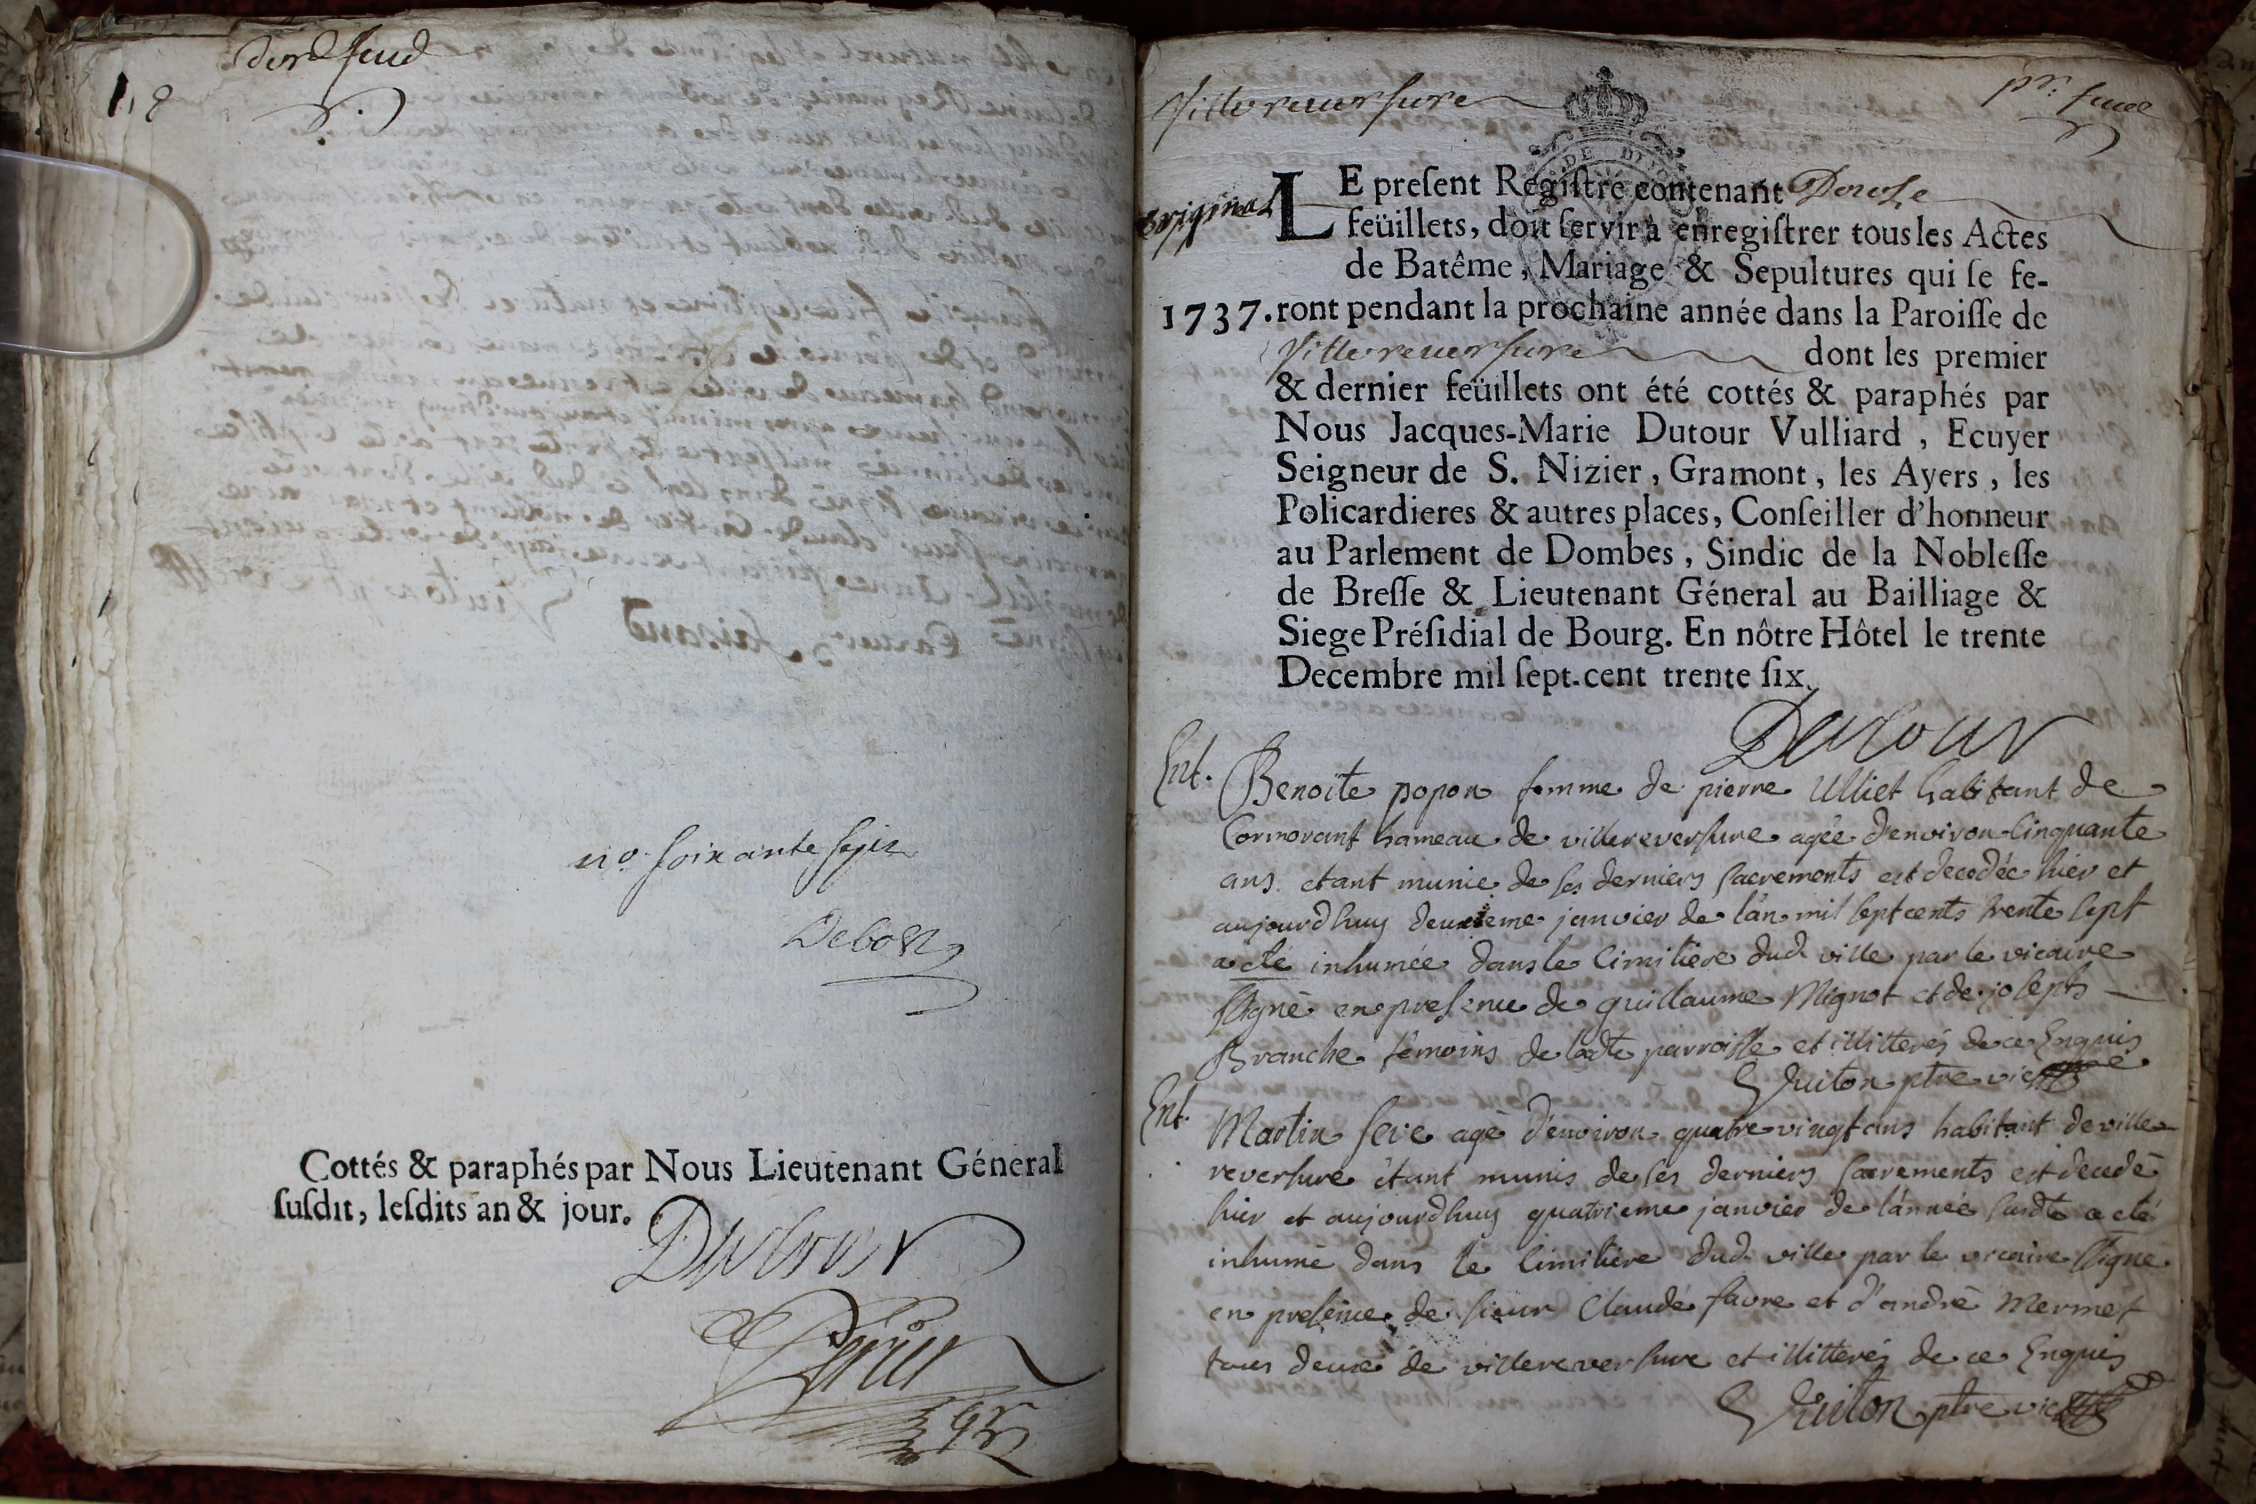 118
dern feud
no. soixante sept
Cottés & paraphés par Nous Lieutenant Géneral
ſuſdit, leſdits an & jour.
Dutour
Villereuersure
pr. feuil
Original
LE preſent Regiſtre contenant Douze
feüillets, doit ſervir à enregiſtrer tous les Actes
de Batême, Mariage & Sepultures qui ſe fe-
1737. ront pendant la prochaine année dans la Paroiſſe de
Villereuersure dont les premier
& dernier feüillets ont été cottés & paraphés par
Nous Jacques-Marie Dutour Vulliard, Ecuyer
Seigneur de S. Nizier, Gramont, les Ayers, les
Policardieres & autres places, Conſeiller d'honneur
au Parlement de Dombes, Sindic de la Nobleſſe
de Breſſe & Lieutenant Géneral au Bailliage &
Siege Préſidial de Bourg. En nôtre Hôtel le trente
Decembre mil ſept-cent trente ſix.
Dutour
Ent. Benoite popon femme de pierre Ulliet habitant de
Cormorant hameau de villereversure agée d'environ Cinquante
ans etant munie de ses derniers sacrements est decedée hier et
aujourdhuy deuxieme janvier de l'an mil sept cents trente sept
a eté inhumée dans le Cimitiere dud ville par le vicaire
ssigné en presence de guillaume Mignot et de joseph
Branche témoins de ladte parroisse et illitterés de ce Enquis
Guiton ptre vic
Ent. Martin feve agé d'environ quatre vingt ans habitant de ville
reversure étant munis de ses derniers sacrements est decedé
hier et aujourdhuy quatrieme janvier de l'année susdte a eté
inhumé dans le Cimitiere dud ville par le vicaire ssigné
en presence de sieur Claude favre et d'andré Mermet
tous deux de villereversure et illitterés de ce Enquis
Guiton ptre vic